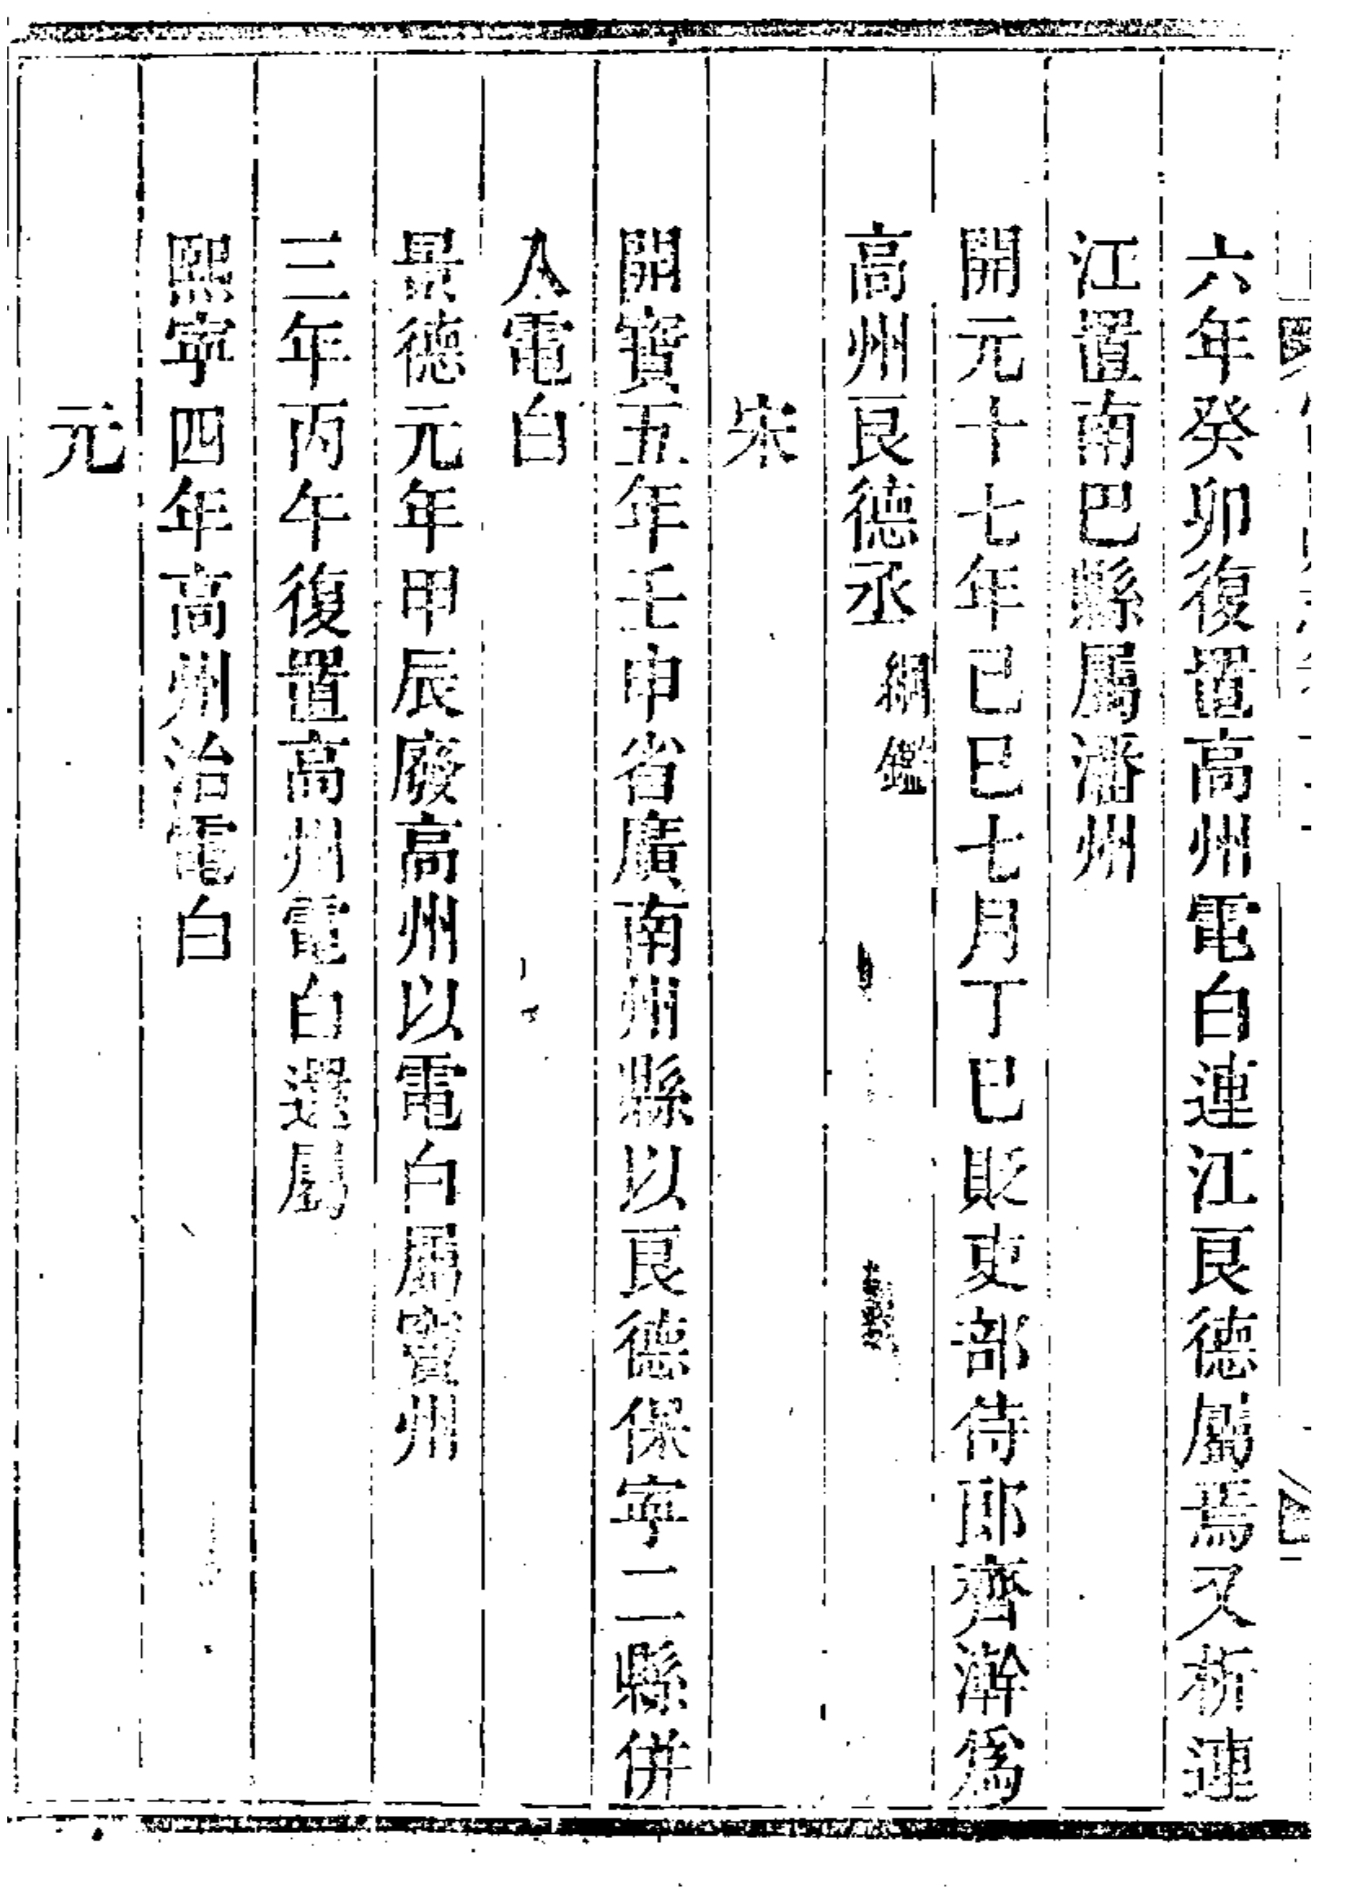 六年癸卯復置高州電白連江良德屬焉又析連
江置南巴縣屬潘州
開元十七年己巳七月丁巳貶吏部侍郎齊澣爲
高州良德丞 綱鑑
宋
開寶五年壬申省廣南州縣以良德保寧二縣併
入電白
景德元年甲辰廢高州以電白屬竇州
三年丙午復置高州電白還屬
熙寧四年高州治電白
元